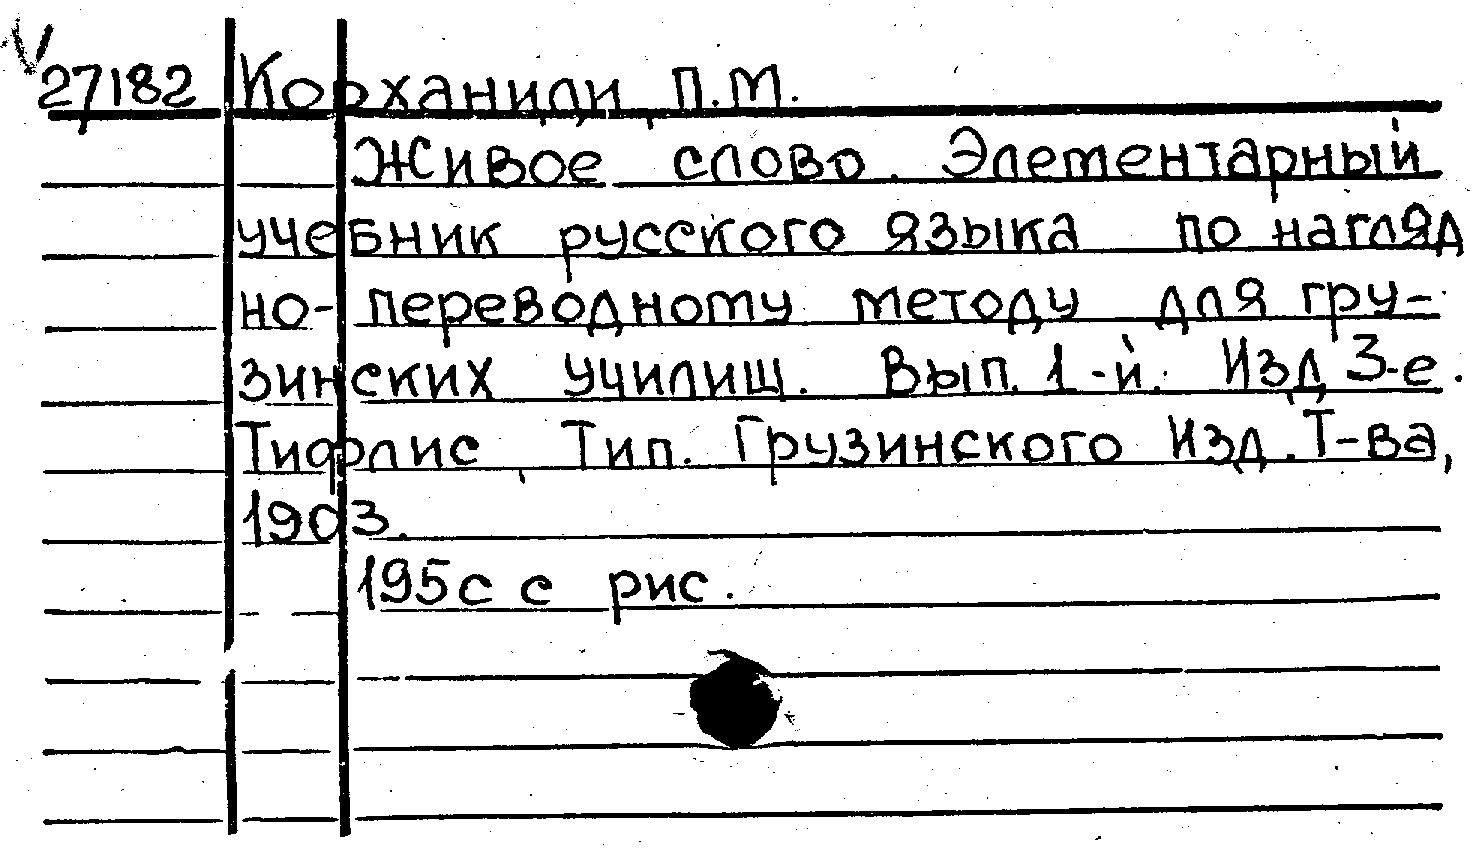 27182 Корханиди, П.М.
Живое слово. Элементарный
учебник русского языка по нагляд
но-переводному методу для гру-
зинских училищ. Вып. 1-й. Изд 3-е.
Тифлис, Тип. Грузинского Изд. Т-ва,
1903.
195с с рис.